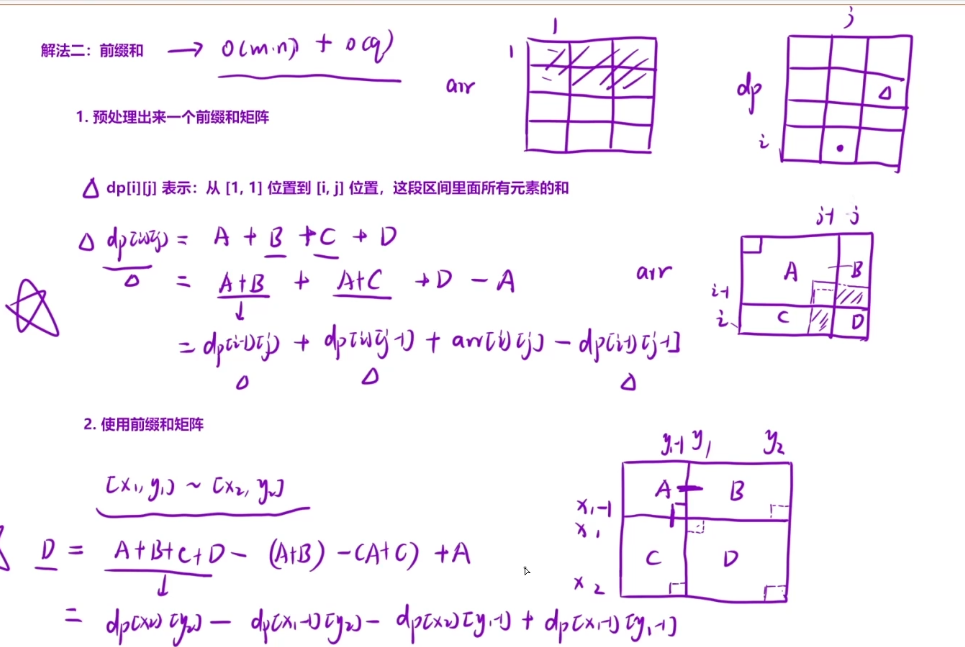 解法二：前缀和 → O(m·n) + O(q)
1
1
arr
j
dp
Δ
i
1. 预处理出来一个前缀和矩阵
Δ dp[i][j] 表示：从 [1, 1] 位置到 [i, j] 位置，这段区间里面所有元素的和
Δ dp[i][j] = A + B + C + D
Δ = A+B + A+C + D - A
= dp[i-1][j] + dp[i][j-1] + arr[i][j] - dp[i-1][j-1]
Δ Δ Δ
arr
j-1 j
i-1
i
A B
C D
2. 使用前缀和矩阵
[x1, y1] ~ [x2, y2]
D = A+B+C+D - (A+B) - (A+C) + A
= dp[x2][y2] - dp[x1-1][y2] - dp[x2][y1-1] + dp[x1-1][y1-1]
y1-1 y1 y2
x1-1
x1
x2
A B
C D